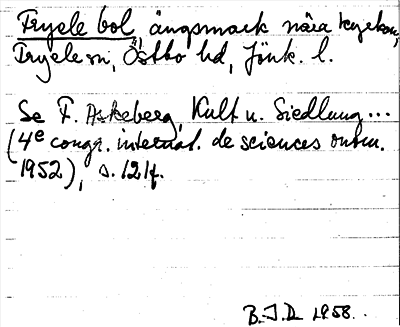 Fryele bol ängsmark nära kyrkan,
Fryele sn, Östbo hd, Jönk. l.
Se F. Askeberg, Kult u. Siedlung...
(4e congr. internat. de sciences onom.
1952), s. 121f.
B.J.D 1958.